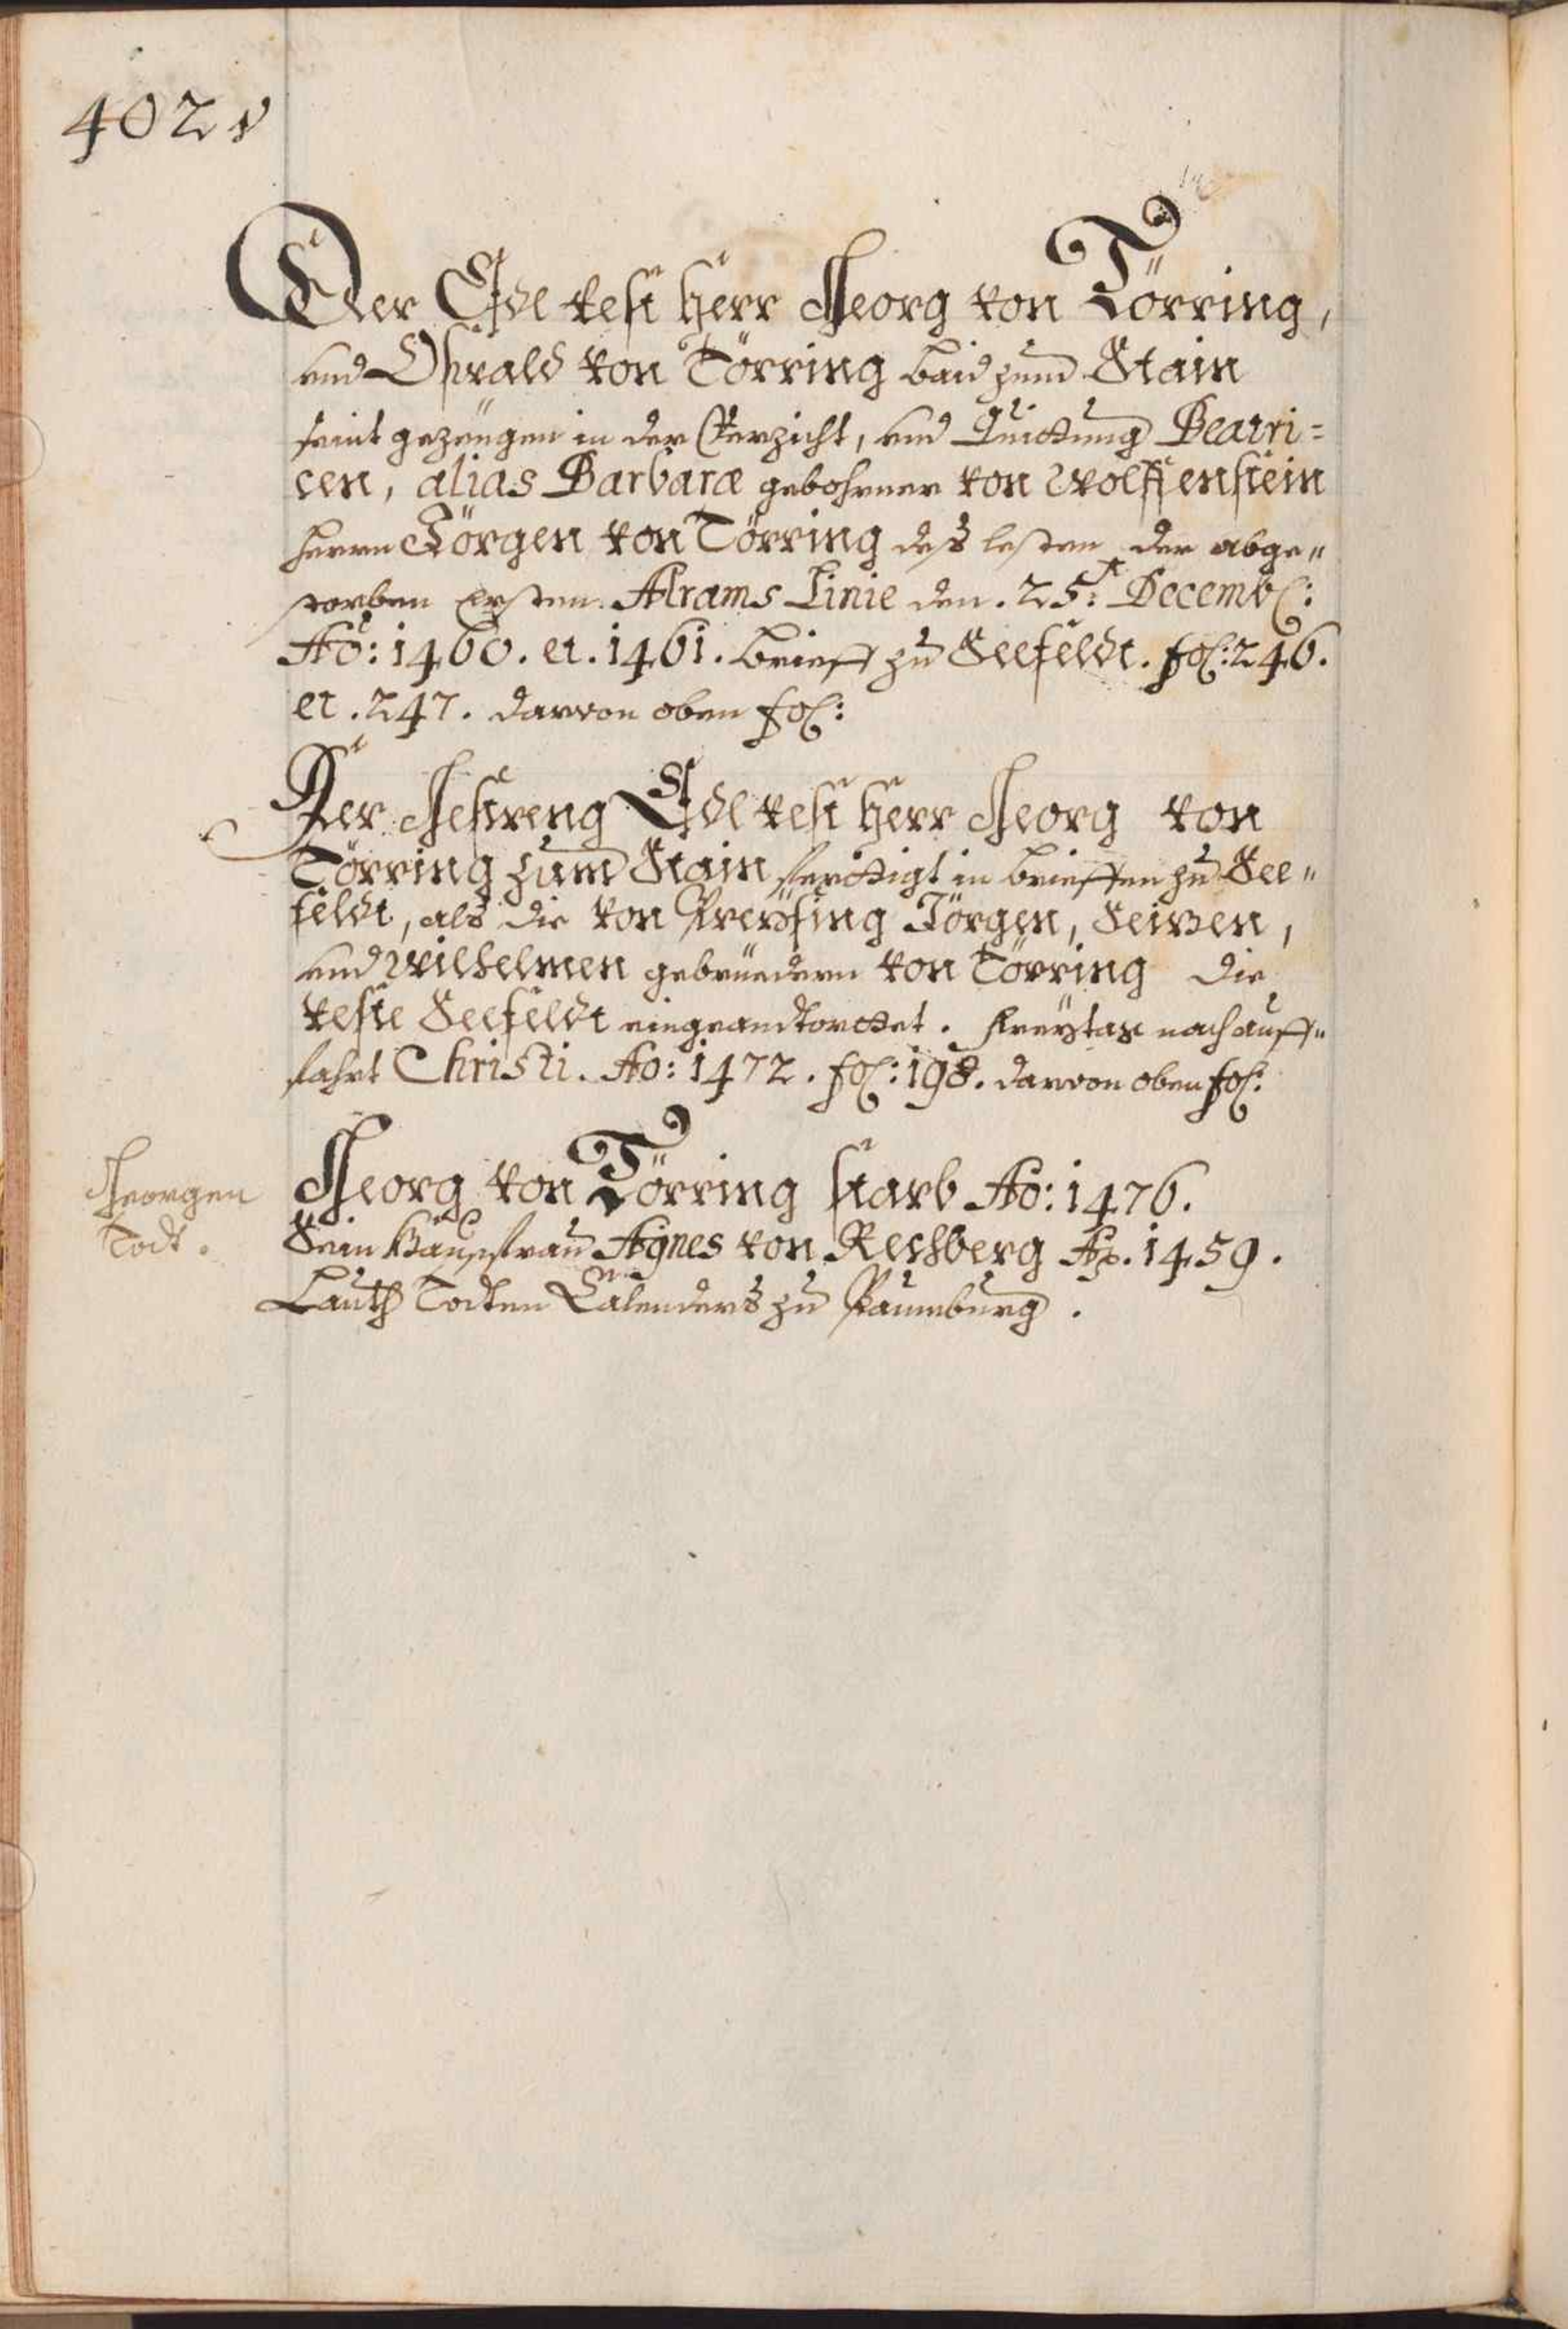 402v
Der Edl vest Herr Georg von Törring,
und Oswald von Törring baid zum Stain
seint gezeugen in der Verzicht, und Quittung Beatri=
cen, alias Barbaræ gebohrner von Wolffenstein
herrn Görgen von Törring deß lesten der abge„
storben ersten Atrams Linie den .25t: Decemb:
Ao: 1460. et. 1461. brieff zu Seefeldt. fol: 246.
et .247. darvon oben fol:
Der Gestreng Edl vest Herr Georg von
Törring zum Stain ferttigt in brieffen zu See„
feldt, als die von Preysing Jörgen, Seitzen,
und Wilhelmen gebrüedern von Törring die
veste Seefeldt eingeandtworttet. Freytag nach auff„
fahrt Christi. Ao: 1472. fol: 198. darvon oben fol:
Georgen
Todt.
Georg von Törring starb Ao: 1476.
Sein Haußfrau Agnes von Rechberg Ao. 1459.
Lauth Todten Calenders zu Paumburg.